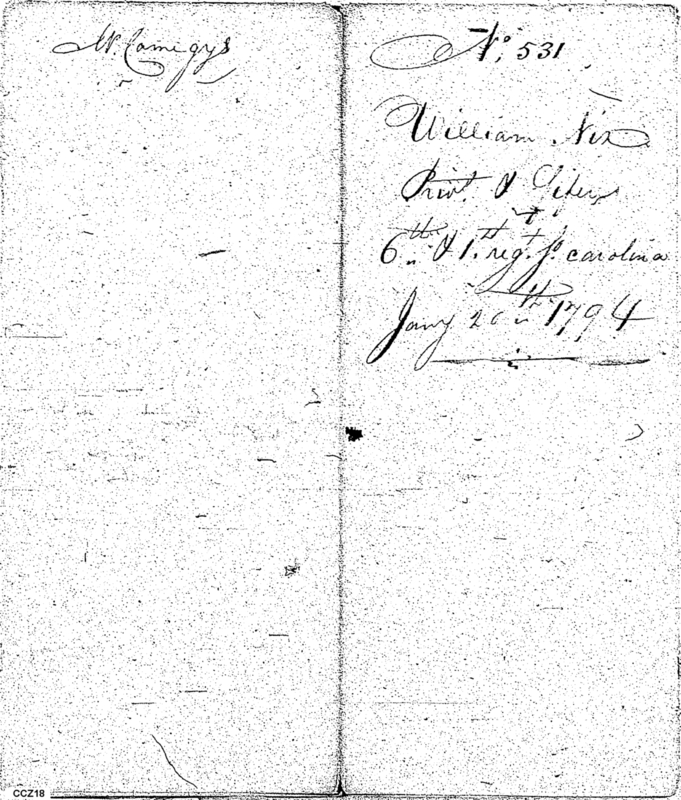 No. 531
William Nix
Privt. & Fifer
6th & 1st regt. So. carolina
Jany 20th 1794
CCZ18